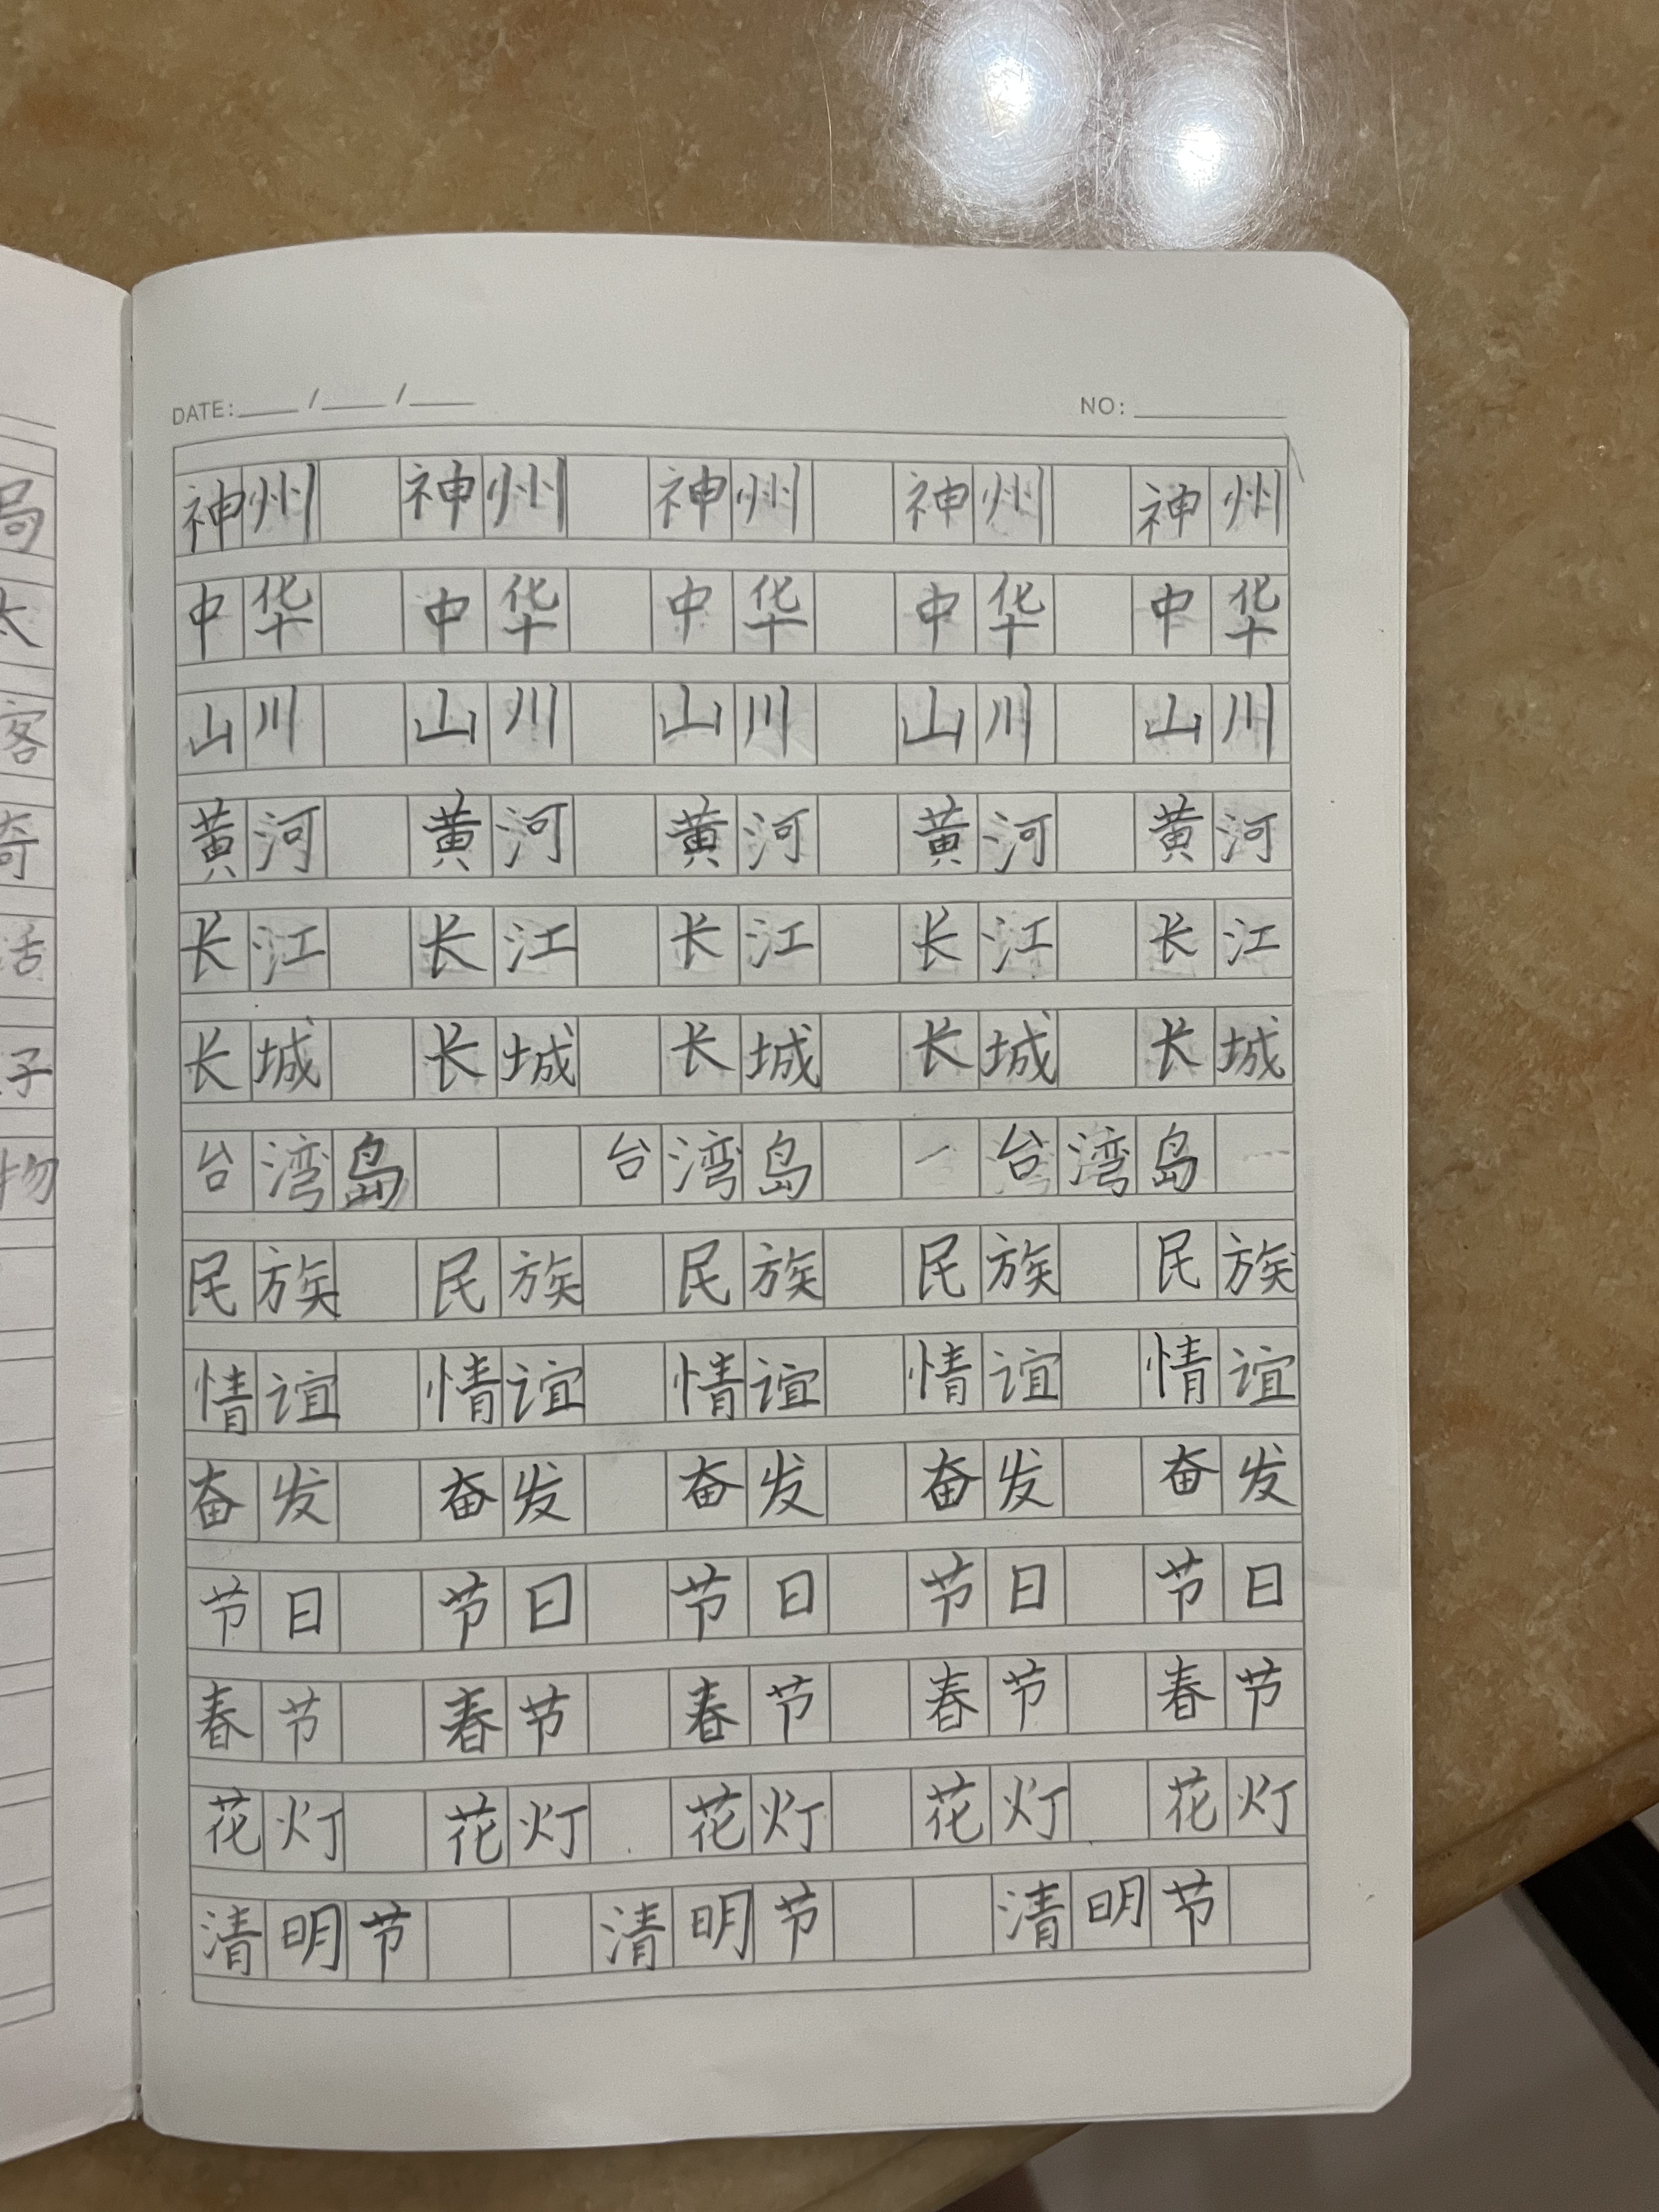 DATE: / / NO:
局
神州 神州 神州 神州 神州
太
中华 中华 中华 中华 中华
客
山川 山川 山川 山川 山川
奇
黄河 黄河 黄河 黄河 黄河
活
长江 长江 长江 长江 长江
子
长城 长城 长城 长城 长城
物
台湾岛 台湾岛 台湾岛
民族 民族 民族 民族 民族
情谊 情谊 情谊 情谊 情谊
奋发 奋发 奋发 奋发 奋发
节日 节日 节日 节日 节日
春节 春节 春节 春节 春节
花灯 花灯 花灯 花灯 花灯
清明节 清明节 清明节